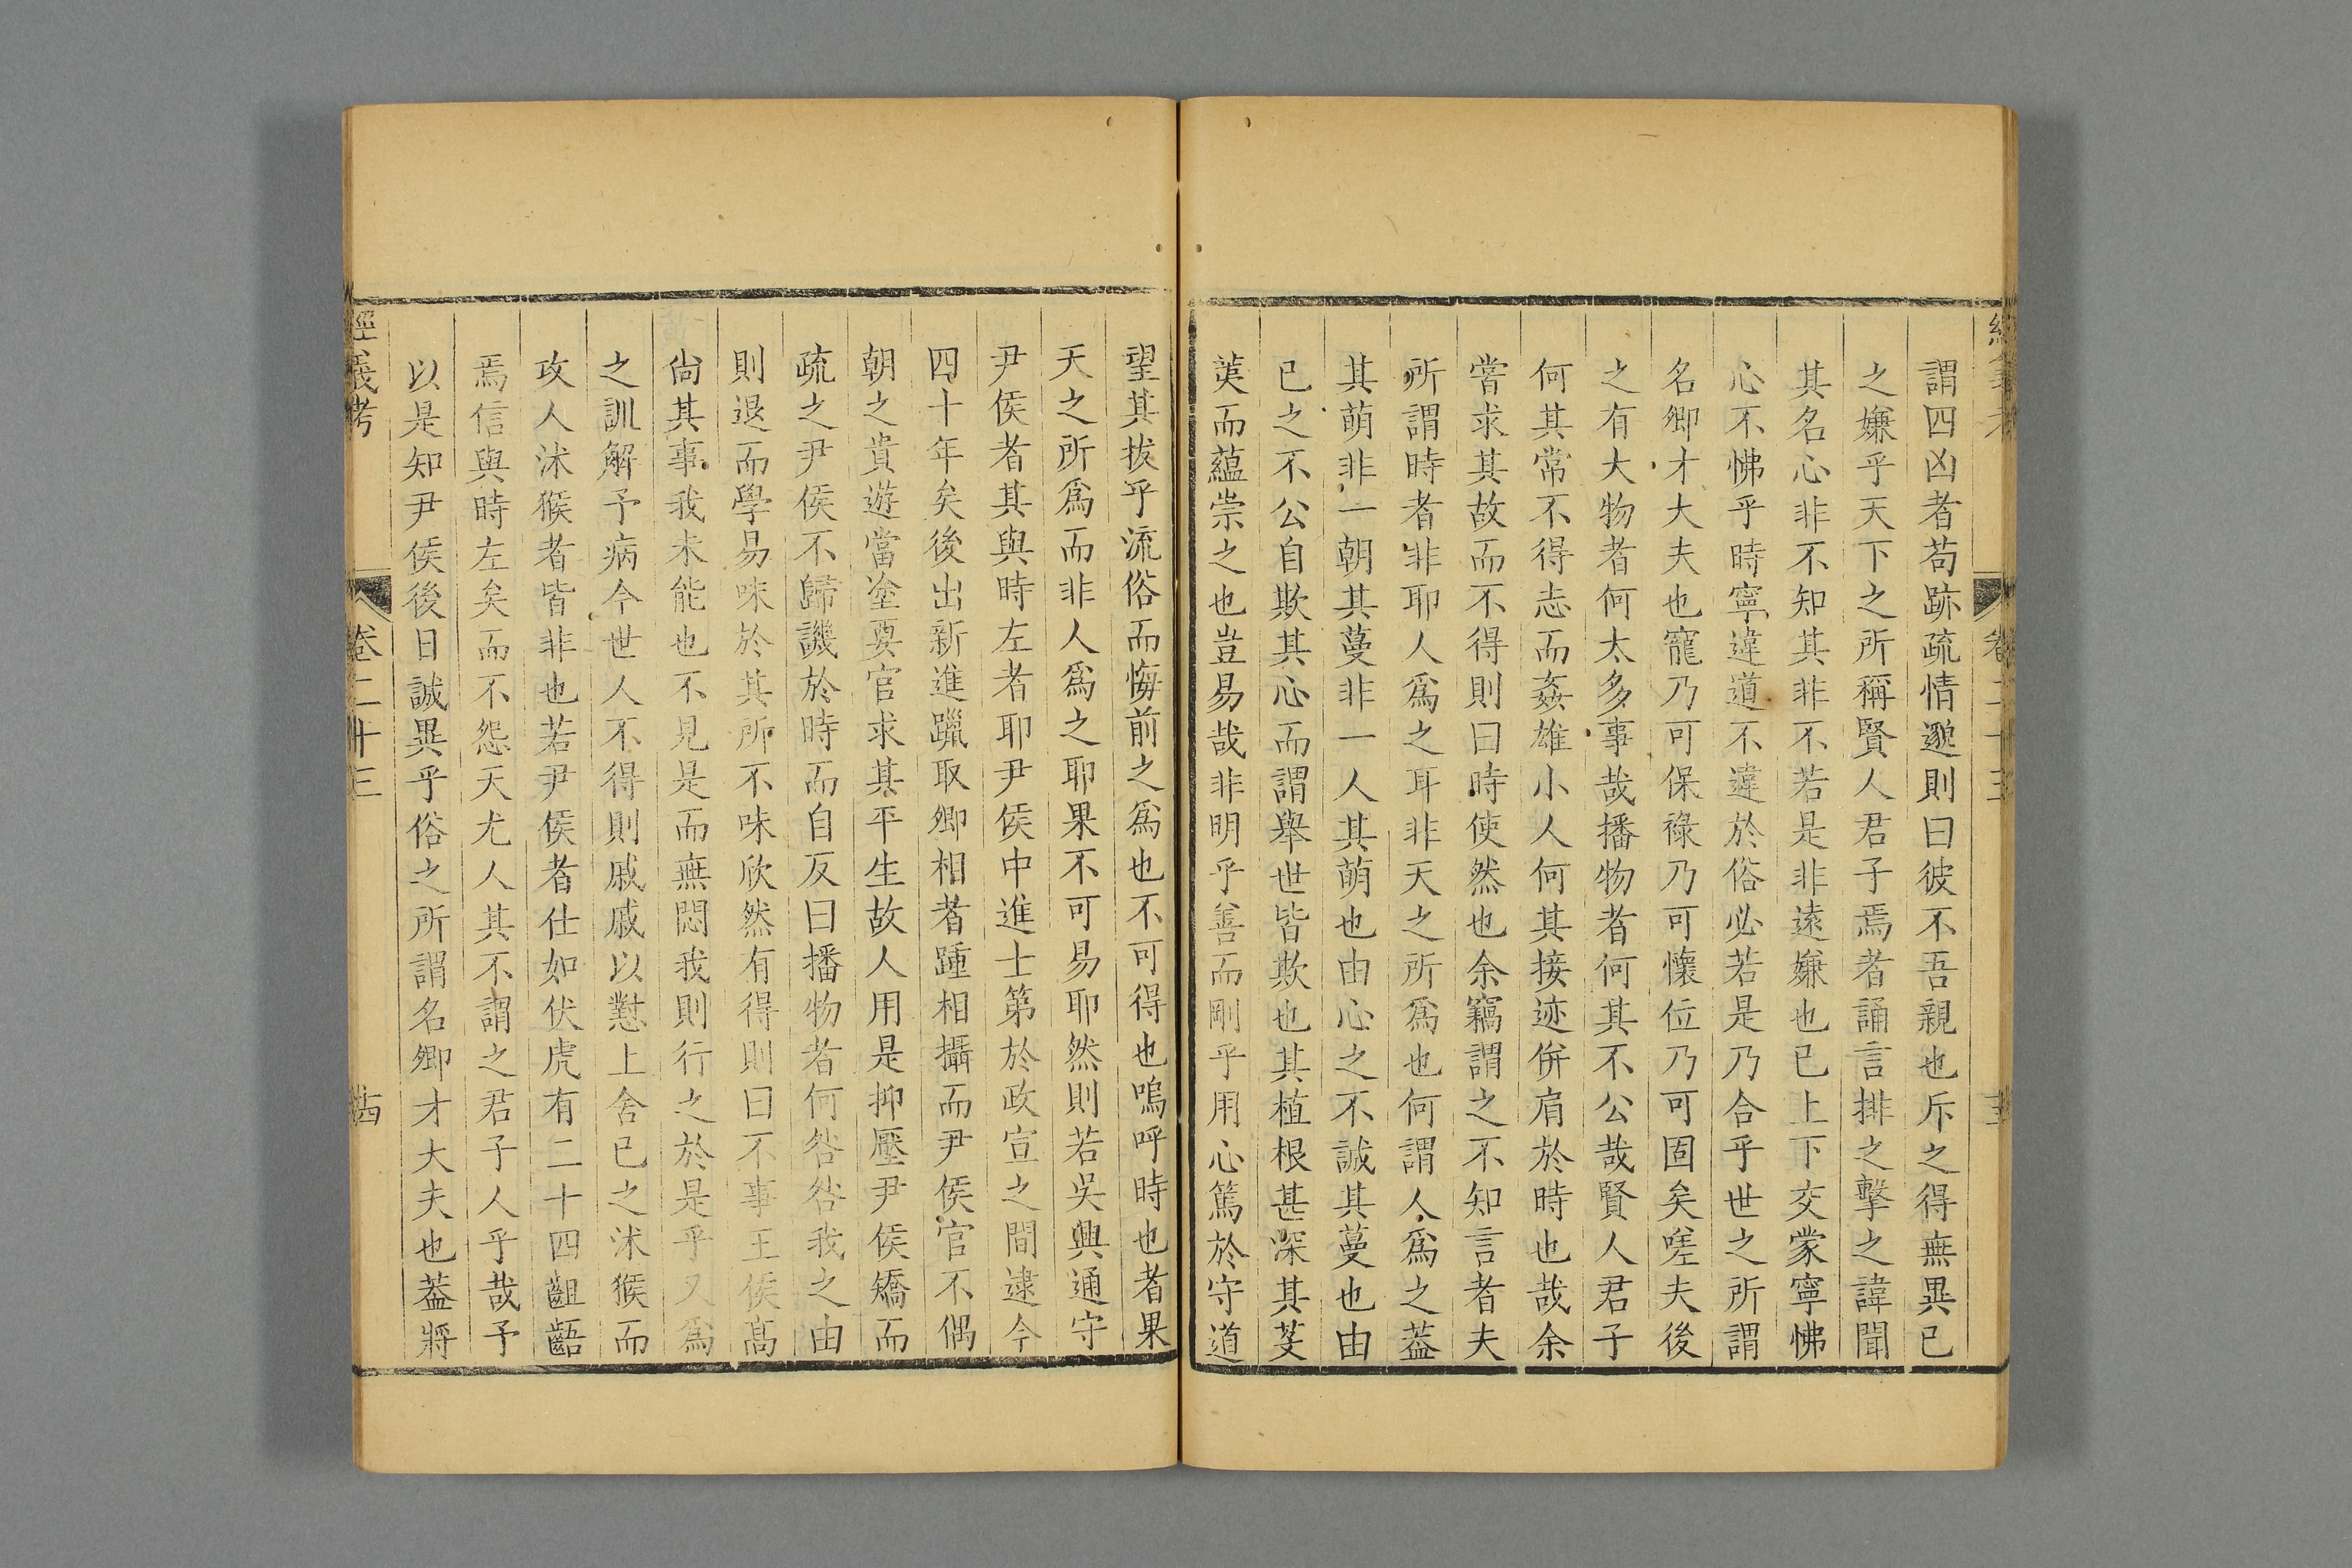 謂四凶者苟跡疏情邈則曰彼不吾親也斥之得無異已
之嫌乎天下之所稱賢人君子焉者誦言排之擊之諱聞
其名心非不知其非不若是非遠嫌也已上下交蒙寧怫
心不怫乎時寧違道不違於俗必若是乃合乎世之所謂
名卿才大夫也寵乃可保祿乃可懷位乃可固矣嗟夫後
之有大物者何太多事哉播物者何其不公哉賢人君子
何其常不得志而姦雄小人何其接迹併肩於時也哉余
嘗求其故而不得則曰時使然也余竊謂之不知言者夫
所謂時者非耶人爲之耳非天之所爲也何謂人爲之蓋
其萌非一朝其蔓非一人其萌也由心之不誠其蔓也由
已之不公自欺其心而謂舉世皆欺也其植根甚深其芟
荑而蘊崇之也豈易哉非明乎善而剛乎用心篤於守道
望其拔乎流俗而悔前之爲也不可得也嗚呼時也者果
天之所爲而非人爲之耶果不可易耶然則若吳興通守
尹侯者其與時左者耶尹侯中進士第於政宣之間逮今
四十年矣後出新進躐取卿相者踵相攝而尹侯官不偶
朝之貴遊當塗要官求其平生故人用是抑壓尹侯矯而
疏之尹侯不歸譏於時而自反曰播物者何咎咎我之由
則退而學易味於其所不味欣然有得則曰不事王侯高
尙其事我未能也不見是而無悶我則行之於是乎又爲
之訓解予病今世人不得則戚戚以懟上舍已之沐猴而
攻人沐猴者皆非也若尹侯者仕如伏虎有二十四齟齬
焉信與時左矣而不怨天尤人其不謂之君子人乎哉予
以是知尹侯後日誠異乎俗之所謂名卿才大夫也蓋將
經義考 卷二十三 十四